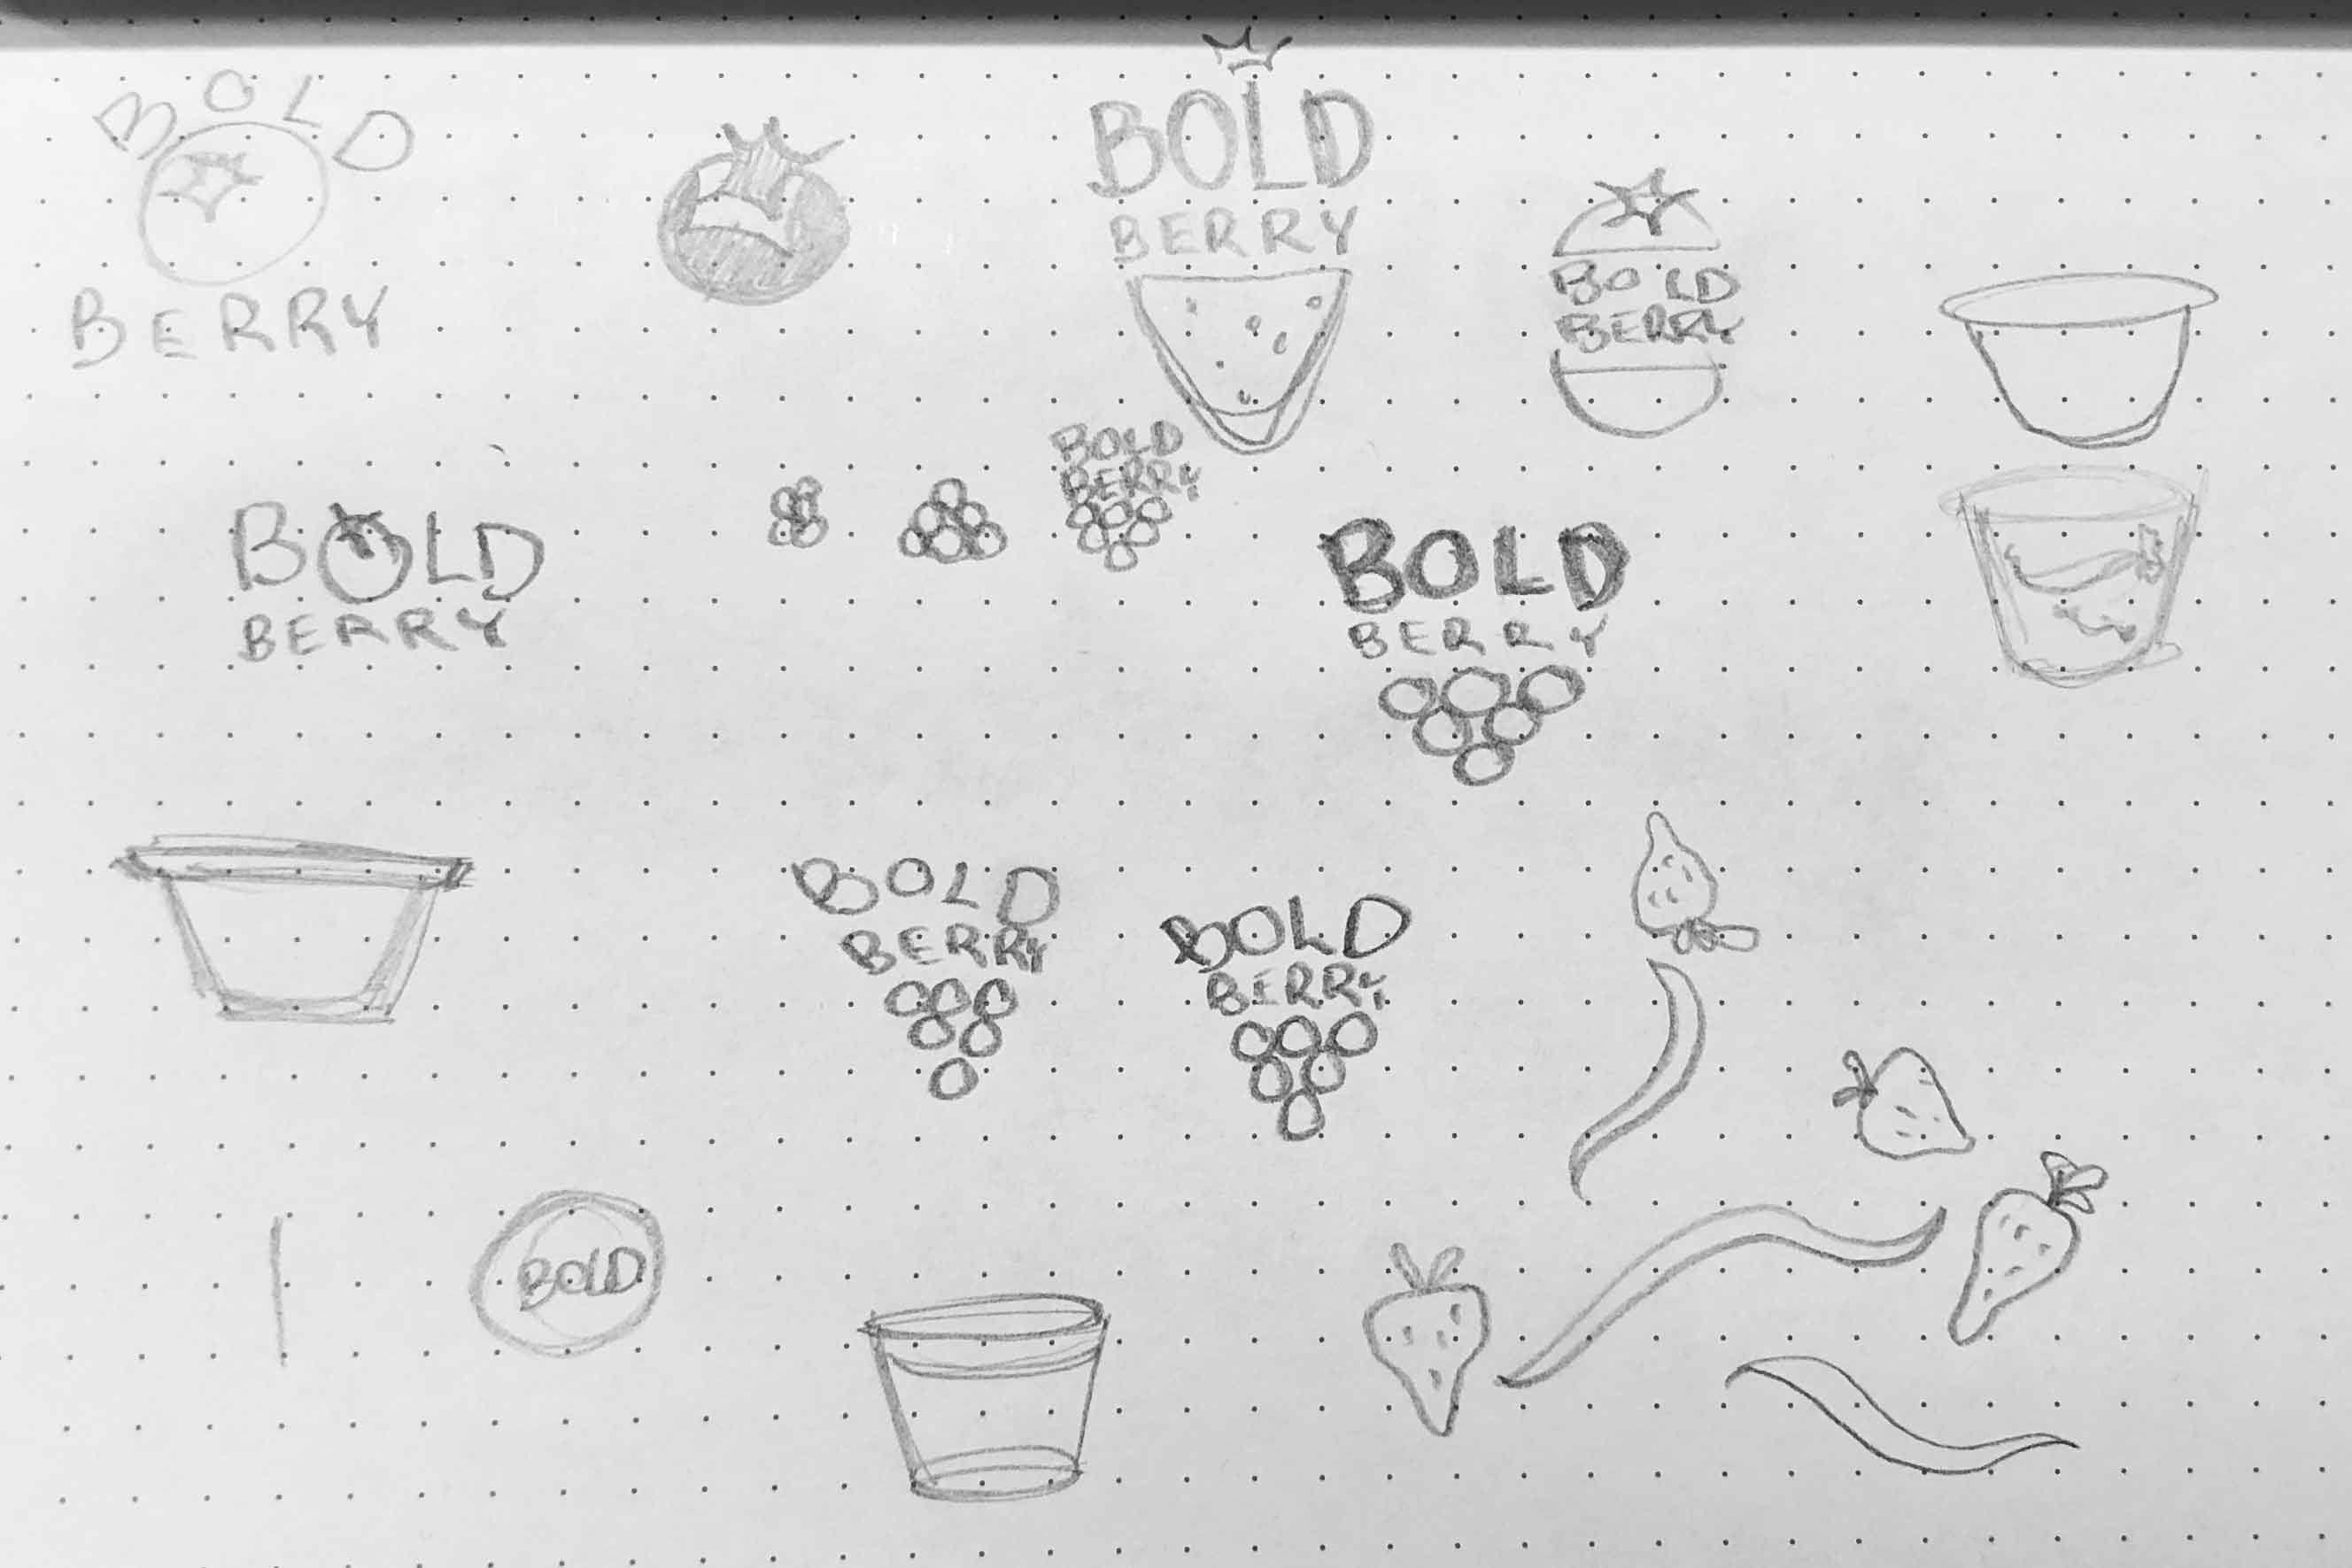 BOLD
BERRY
BOLD
BERRY
BOLD
BERRY
BOLD
BERRY
BOLD
BERRY
BOLD
BERRY
BOLD
BERRY
BOLD
BERRY
BOLD